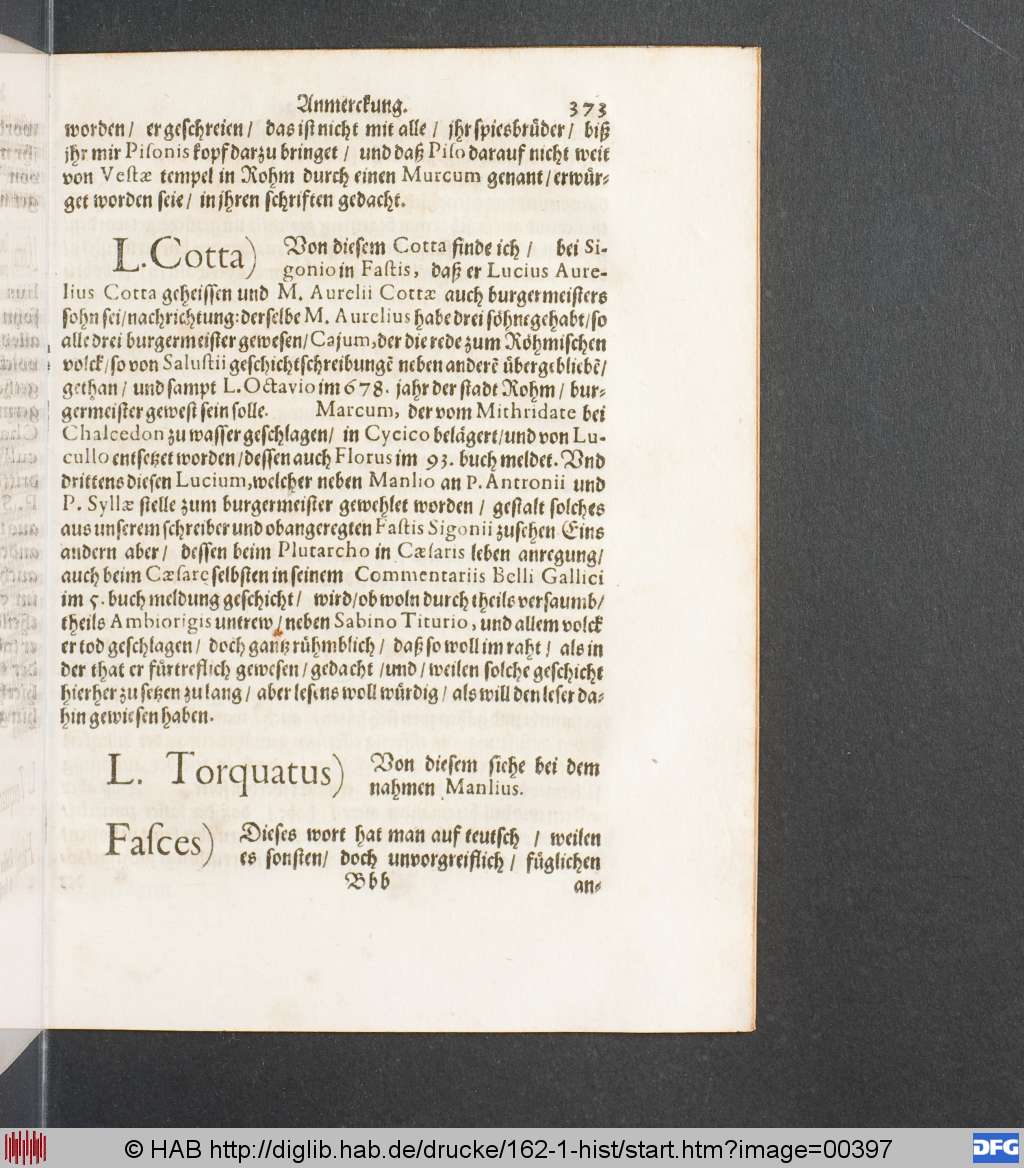 Anmerckung. 373
worden/ er geschreien/ das ist nicht mit alle/ jhr spiesbrüder/ biß
jhr mir Pisonis kopf darzu bringet/ und daß Piso darauf nicht weit
von Vestæ tempel in Rohm durch einen Murcum genant/ erwür⸗
get worden seie/ in jhren schriften gedacht.
L. Cotta) Von diesem Cotta finde ich/ bei Si-
gonio in Fastis, daß er Lucius Aure-
lius Cotta geheissen und M. Aurelii Cottæ auch burgermeisters
sohn sei/ nachrichtung: derselbe M. Aurelius habe drei söhne gehabt/ so
alle drei burgermeister gewesen/ Cajum, der die rede zum Röhmischen
volck/ so von Salustii geschichtschreibungē neben anderē übergebliebē/
gethan/ und sampt L. Octavio im 678. jahr der stadt Rohm/ bur⸗
germeister gewest sein solle. Marcum, der vom Mithridate bei
Chalcedon zu wasser geschlagen/ in Cycico belägert/ und von Lu-
cullo entsetzet worden/ dessen auch Florus im 93. buch meldet. Vnd
drittens diesen Lucium, welcher neben Manlio an P. Antronii und
P. Syllæ stelle zum burgermeister gewehlet worden/ gestalt solches
aus unserem schreiber und obangeregten Fastis Sigonii zusehen Eins
andern aber/ dessen beim Plutarcho in Cæsaris leben anregung/
auch beim Cæsare selbsten in seinem Commentariis Belli Gallici
im 5. buch meldung geschicht/ wird/ ob woln durch theils versaumb/
theils Ambiorigis untrew/ neben Sabino Titurio, und allem volck
er tod geschlagen/ doch gantz rühmblich/ daß so woll im raht/ als in
der that er fürtreflich gewesen/ gedacht/ und/ weilen solche geschicht
hierher zu setzen zu lang/ aber lesens woll würdig/ als will den leser da⸗
hin gewiesen haben.
L. Torquatus) Von diesem siehe bei dem
nahmen Manlius.
Fasces) Dieses wort hat man auf teutsch/ weilen
es sonsten/ doch unvorgreiflich/ füglichen
Bbb an⸗
© HAB http://diglib.hab.de/drucke/162-1-hist/start.htm?image=00397
DFG